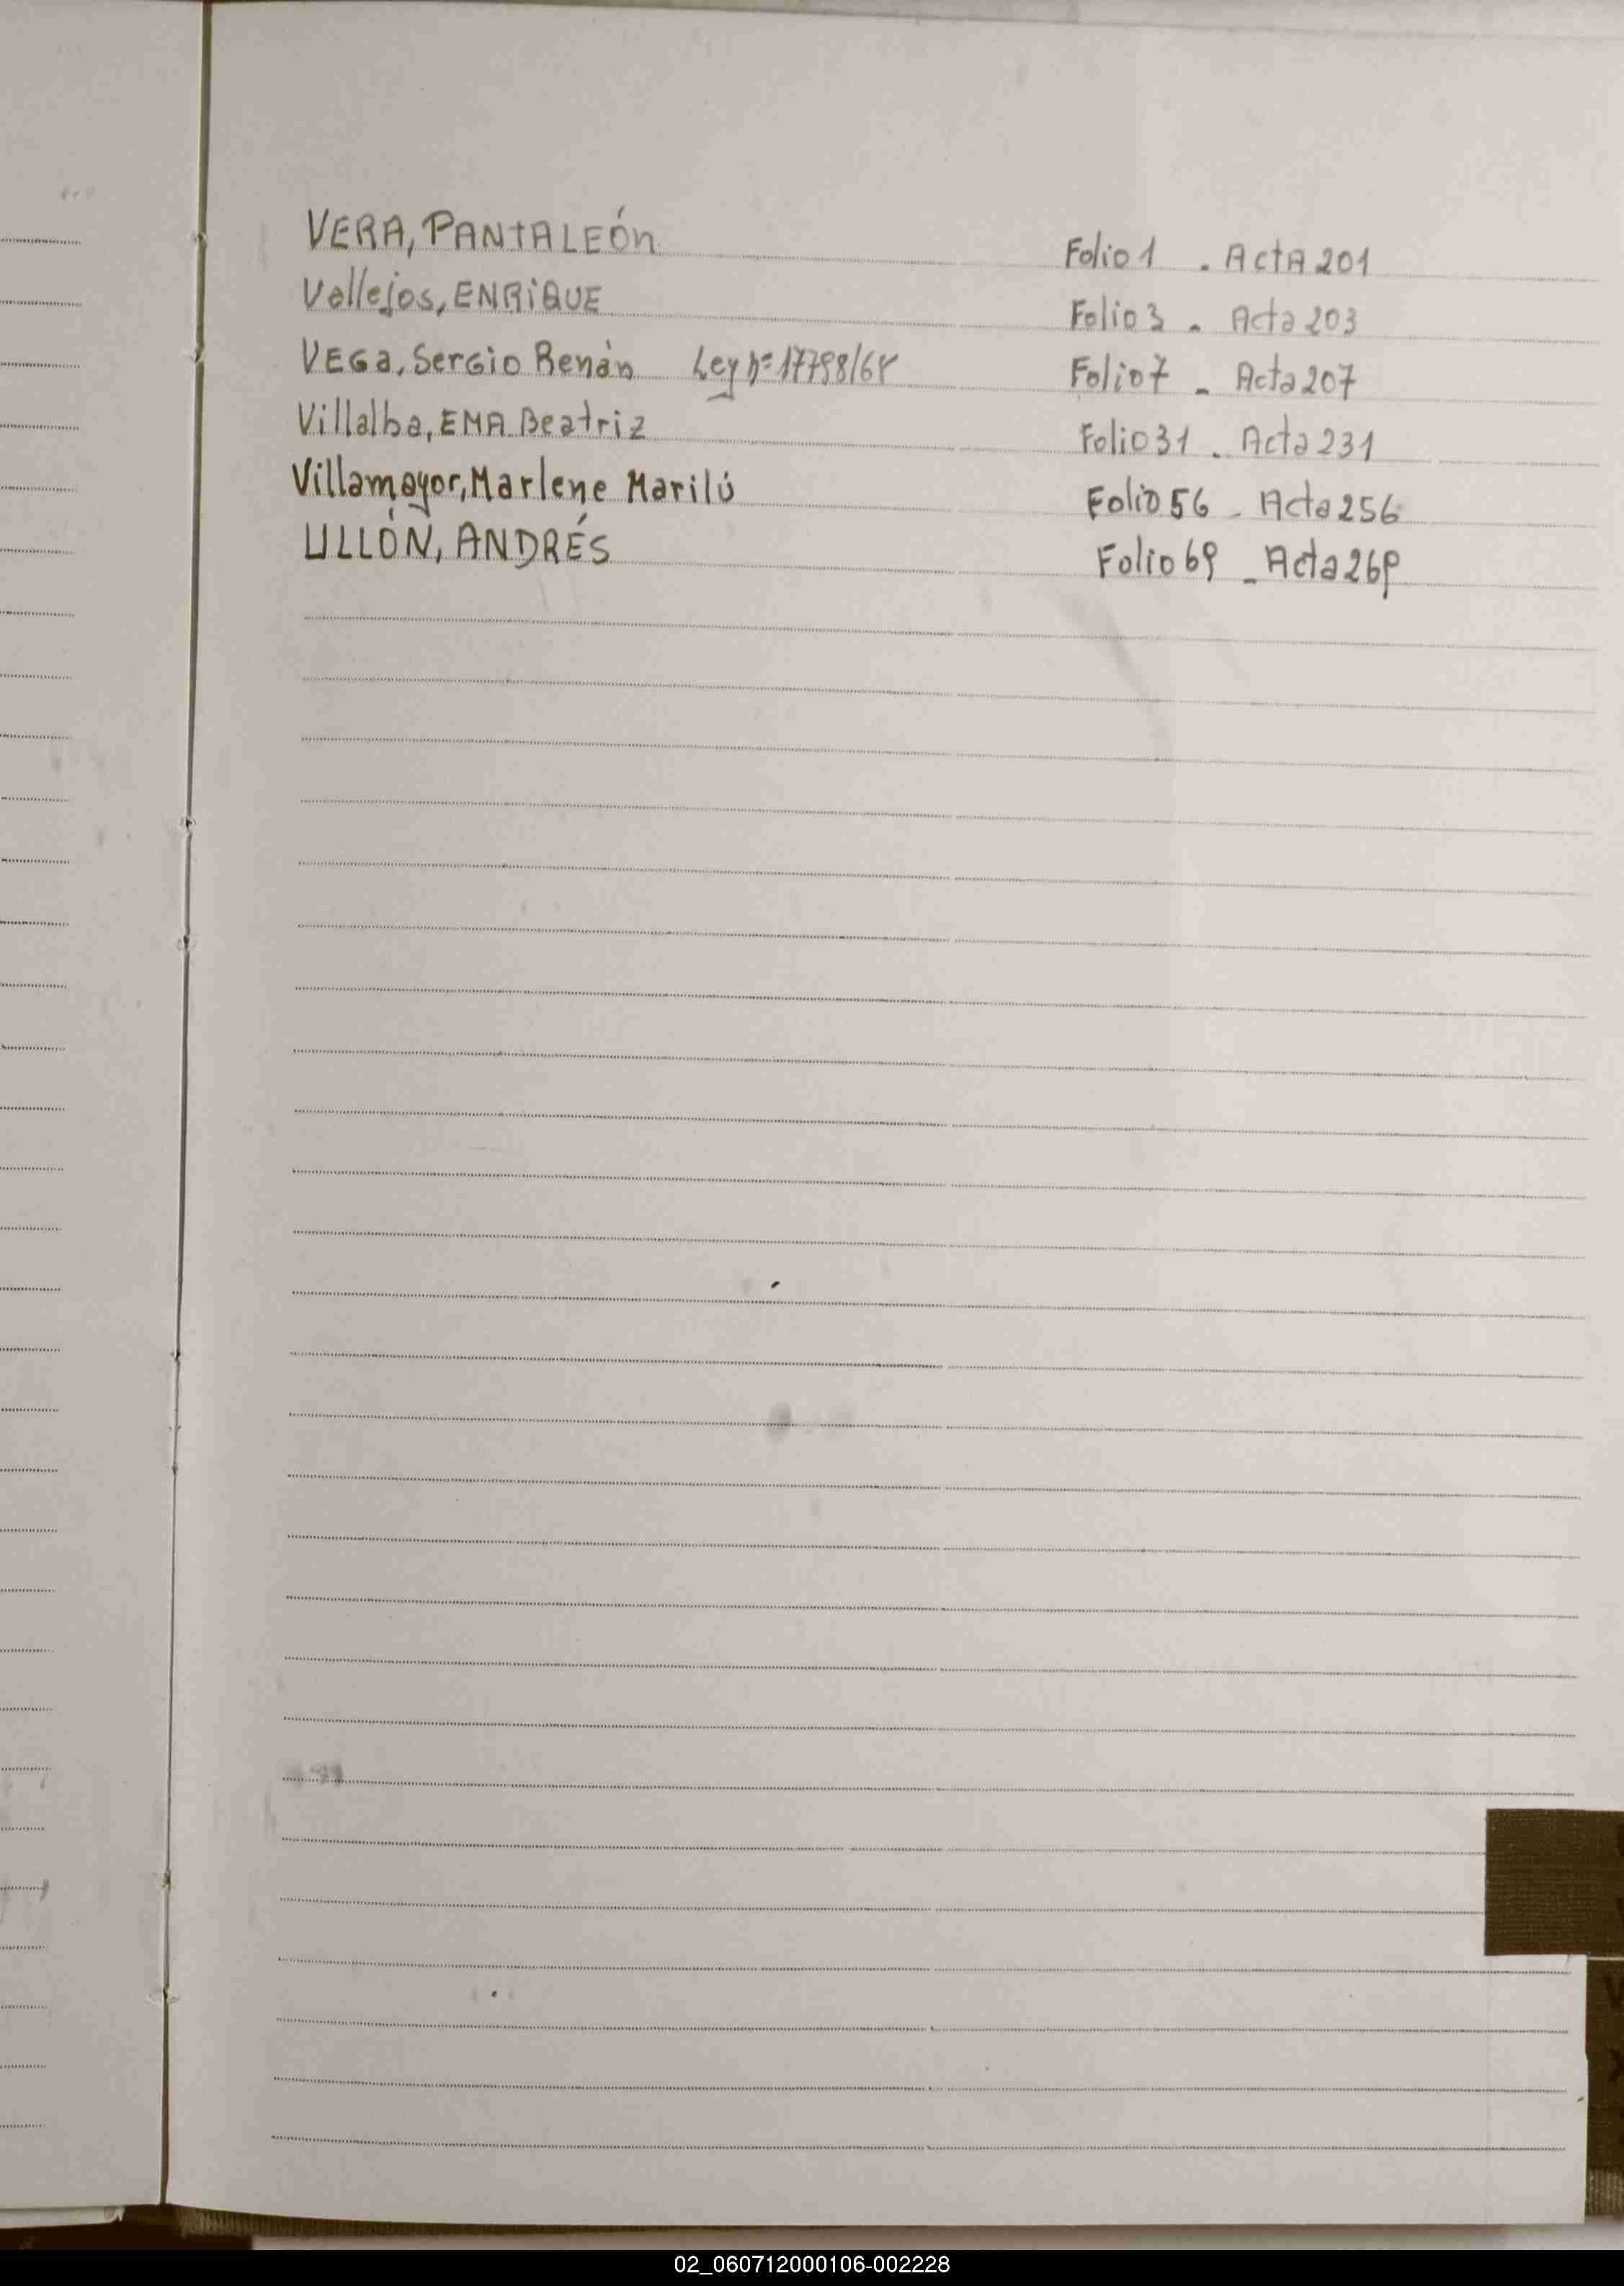 VERA, PANTALEÓn Folio 1 . ActA 201
Vallejos, ENRiQUE Folio 3 . Acta 203
VEGa, Sergio Renán Ley nº 17798/68 Folio 7 - Acta 207
Villalba, EMA Beatriz Folio 31 . Acta 231
Villamayor, Marlene Marilú Folio 56 - Acta 256
ULLÓN, ANDRÉS Folio 69 - Acta 269
02_060712000106-002228